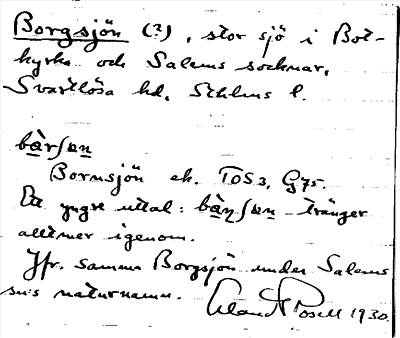 Borgsjön (?), stor sjö i Bot-
kyrka och Salems socknar,
Svartlösa hd, Sthlms l.
Bornsjön ek. TOS3, G75.
Ett yngre uttal: tränger
alltmer igenom.
Jfr. samma Borgsjön under Salems
sn:s naturnamn. 1930.